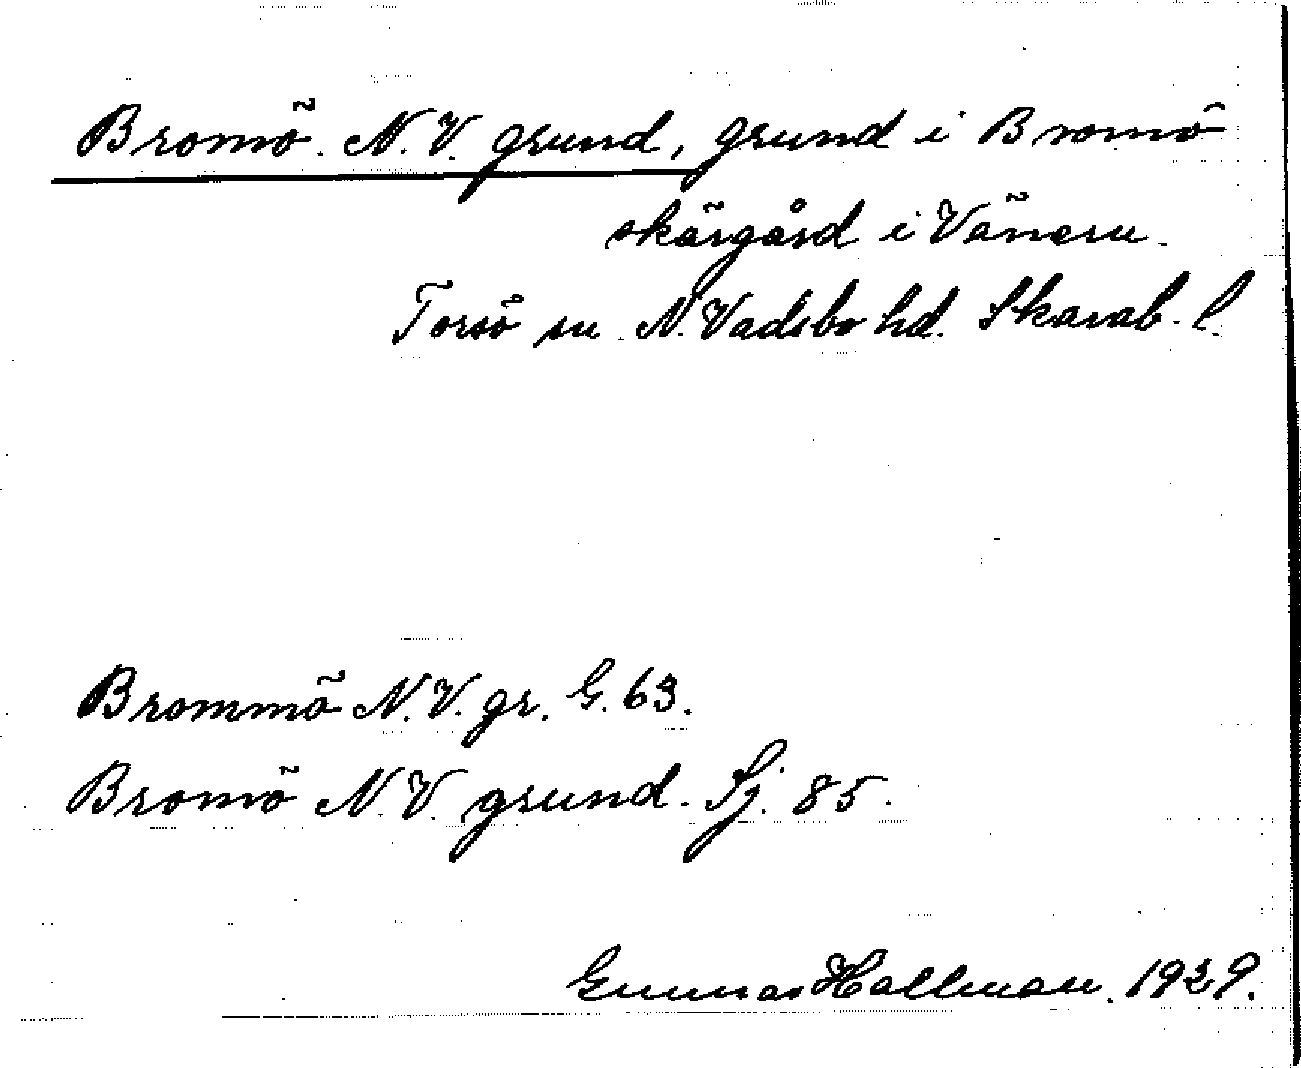 Bromö N.V. grund, grund i Bromö
skärgård i Vänern.
Torsö sn N. Vadsbo hd. Skarab. l.
Brommö N.V. gr. G. 63.
Bromö N.V. grund. Sj. 85.
Gunnar Hallman. 1929.